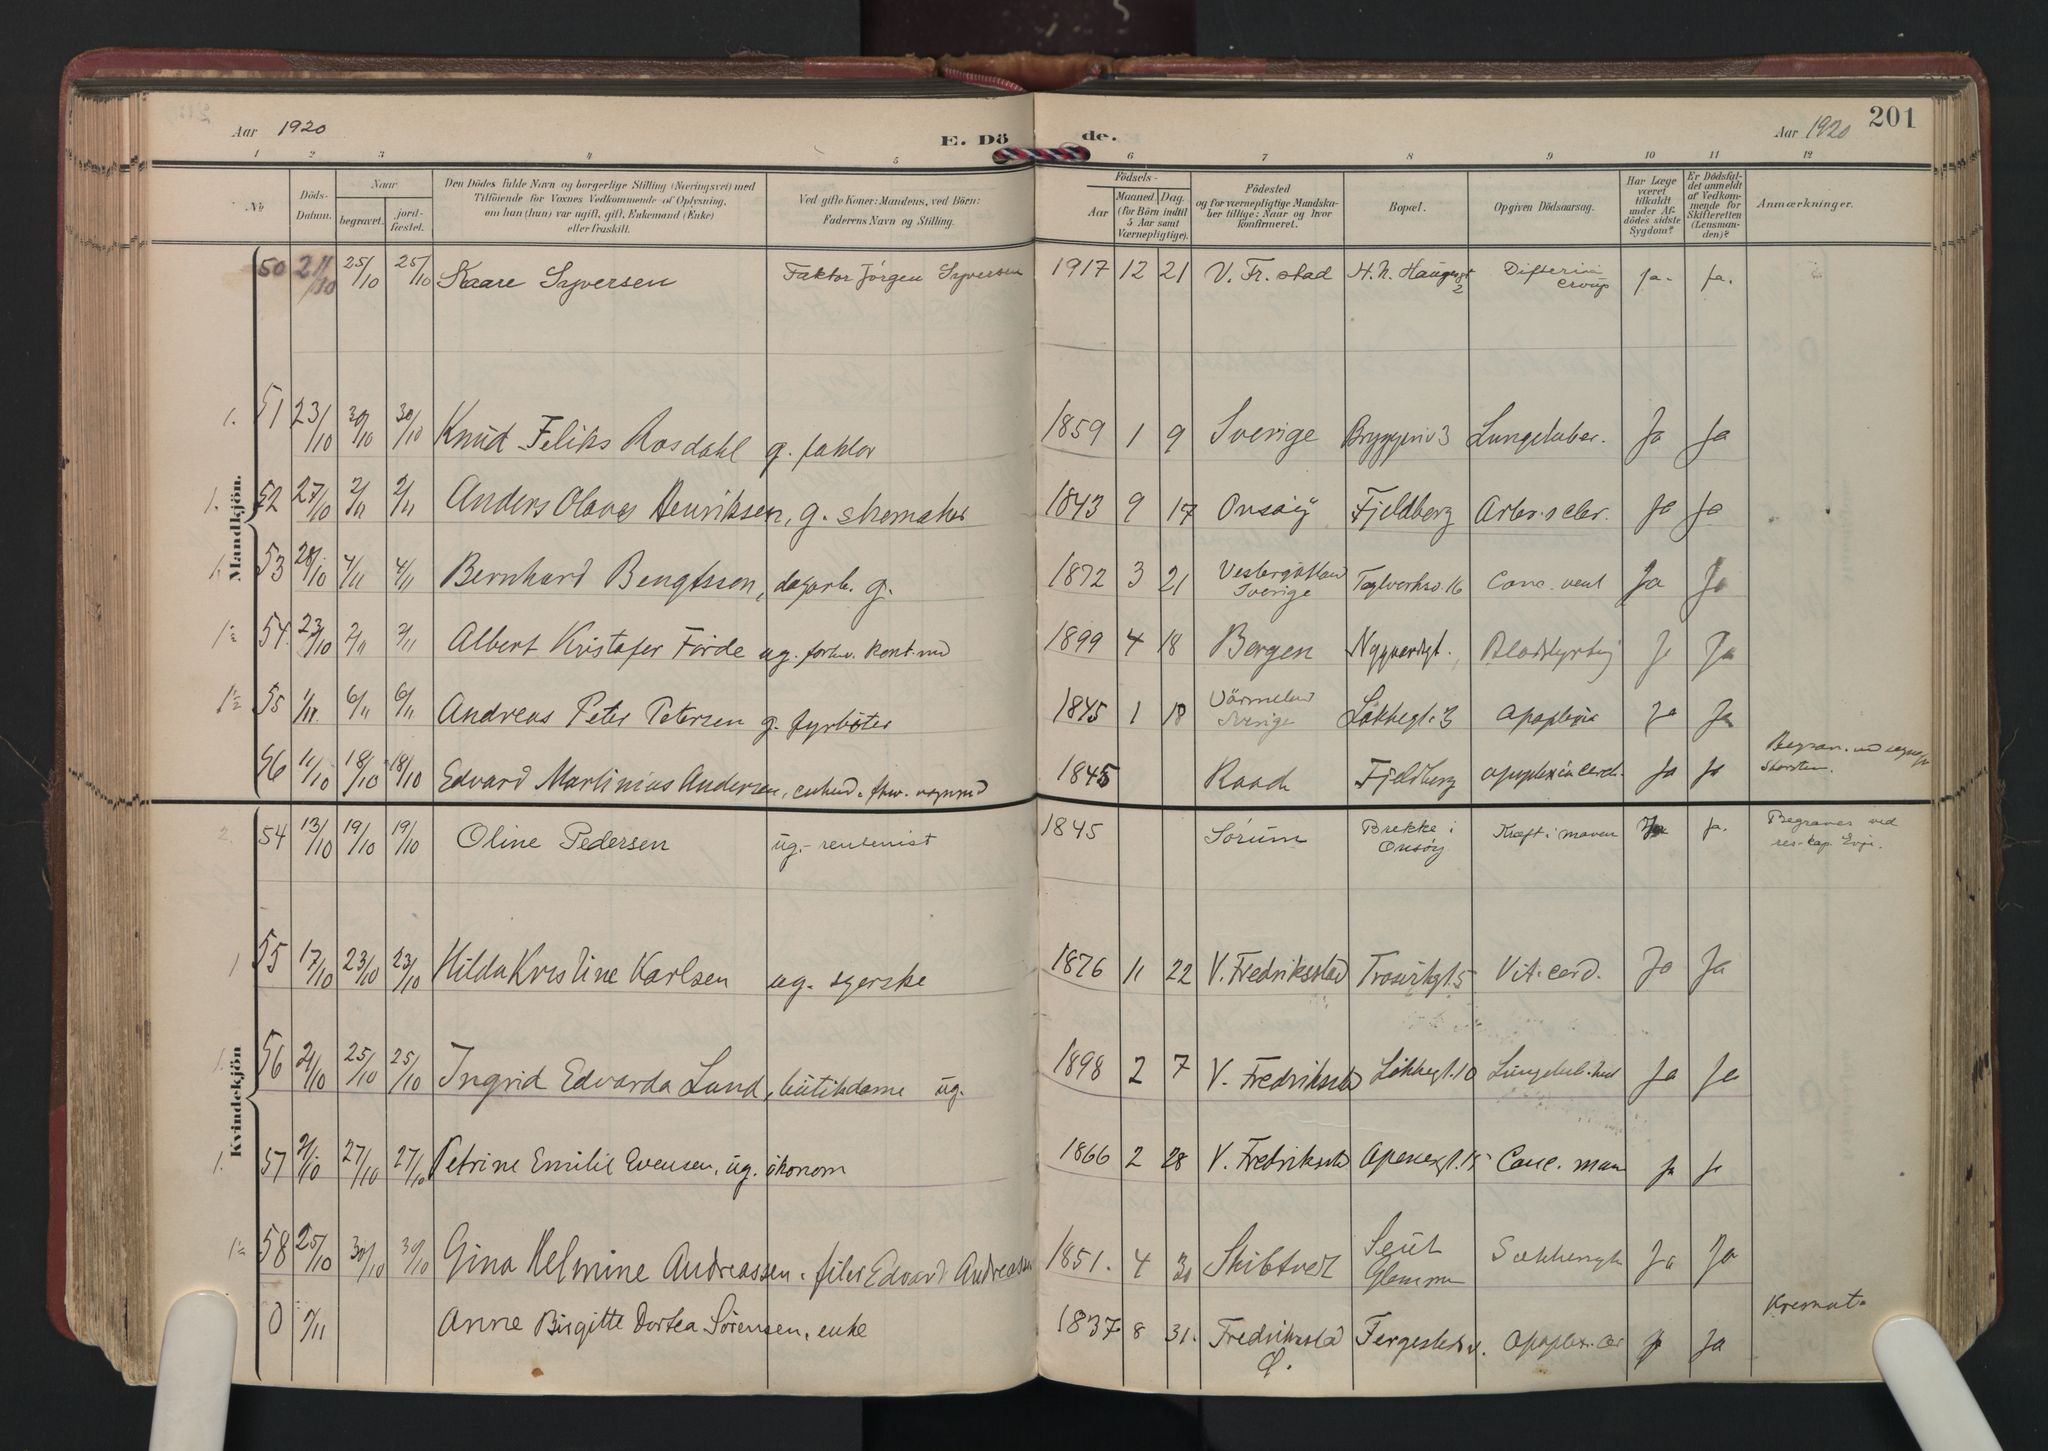 Aar 1920
E. Döde.
Aar 1920
201
1 2 3 4 5 6 7 8 9 10 11 12
No
Döds-Datum.
Naar
begravet.
jord-fæstet.
Den Dödes fulde Navn og borgerlige Stilling (Næringsvei) med
Tilföiende for Voxnes Vedkommende af Oplysning,
om han (hun) var ugift, gift, Enkemand (Enke)
eller fraskilt.
Ved gifte Koner: Mandens, ved Börn:
Faderens Navn og Stilling.
Födsels-
Aar
Maaned
Dag.
(for Börn indtil
5 Aar samt
Værnepligtige).
Födested
og for værnepligtige Mandska-
ber tillige: Naar og hvor
konfirmeret.
Bopæl.
Opgiven Dödsaarsag.
Har Læge
været
tilkaldt
under Af-
dödes sidste
Sygdom?
Er Dödsfal-
det anmeldt
af Vedkom-
mende for
Skifteretten
(Lensman-
den)?
Anmærkninger.
Mandkjön.
50 21/10 25/10 25/10 Kaare Syversen Faktor Jörgen Syversen 1917 12 21 V. Fr. stad H. N. Haugesgt 2 Difteri croup Ja. Ja.
1. 51 23/10 30/10 30/10 Knud Feliks Rosdahl g. faktor 1859 1 9 Sverige Bryggeriv 3 Lungetuber. Ja Ja
1. 52 27/10 2/11 2/11 Anders Olaves Henriksen, g. skomaker 1843 9 17 Onsöy Fjeldberg Arter. scler. Ja Ja
1. 53 28/10 4/11 4/11 Bernhard Bengtsson, dagarb. g. 1872 3 21 Vestergötland Sverige Teglverksv. 16 Canc. vent Ja Ja
54. 23/10 2/11 2/11 Albert Kristofer Förde ug. forhv. kont.md 1899 4 18 Bergen Nygaardsgt. Blodstyrtning J Ja
55 1/11. 6/11 6/11 Andreas Peter Petersen g. fyrböter 1845 1 18 Värmeland Sverige Lökkegt. 3 apoplexia Ja Ja
56 11/10 18/10 18/10 Edvard Martinius Andersen, enkmd. fhv. vognmd 1845 Raade Fjeldberg apoplexia cereb. Ja Ja Begrav. ved sognepr
Kvindekjön
2. 54 13/10 19/10 19/10 Oline Pedersen ug. rentenist 1845 Sörum Brekke i Onsöy Kræft i maven Ja Ja. Begraves ved res. kap. Evje.
1 55 17/10 23/10 23/10 Hilda Kristine Karlsen ug. syerske 1876 11 22 V. Fredriksstad Trosvikgt. 5 Vit. cord. Ja Ja
1. 56 21/10 25/10 25/10 Ingrid Edvarda Lund, butikdame ug. 1898 2 7 V. Fredriksstd Lökkegt. 10 Lungetub. Ja Ja
1. 57 21/10 27/10 27/10 Petrine Emilie Evensen, ug. ökonom 1866 2 28 V. Fredriksstd Apenesgt. 15 Canc. mam Ja Ja
58 25/10 30/10 30/10 Gina Helmine Andreassen. filer Edvard Andreassen 1851. 4 30 Skibtvet Seut Glemmen Ja Ja
0 Anne Birgitte Dortea Sörensen, enke 1837 8 31. Fredriksstad Ö. Fergestedsv. apoplex. cer Ja Ja Kremat.